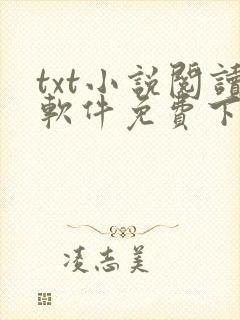 txt小說閱讀
軟件免費下
凌志美